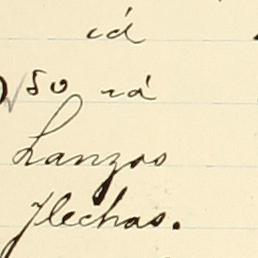 id
50 id
Lanzas
Flechas.